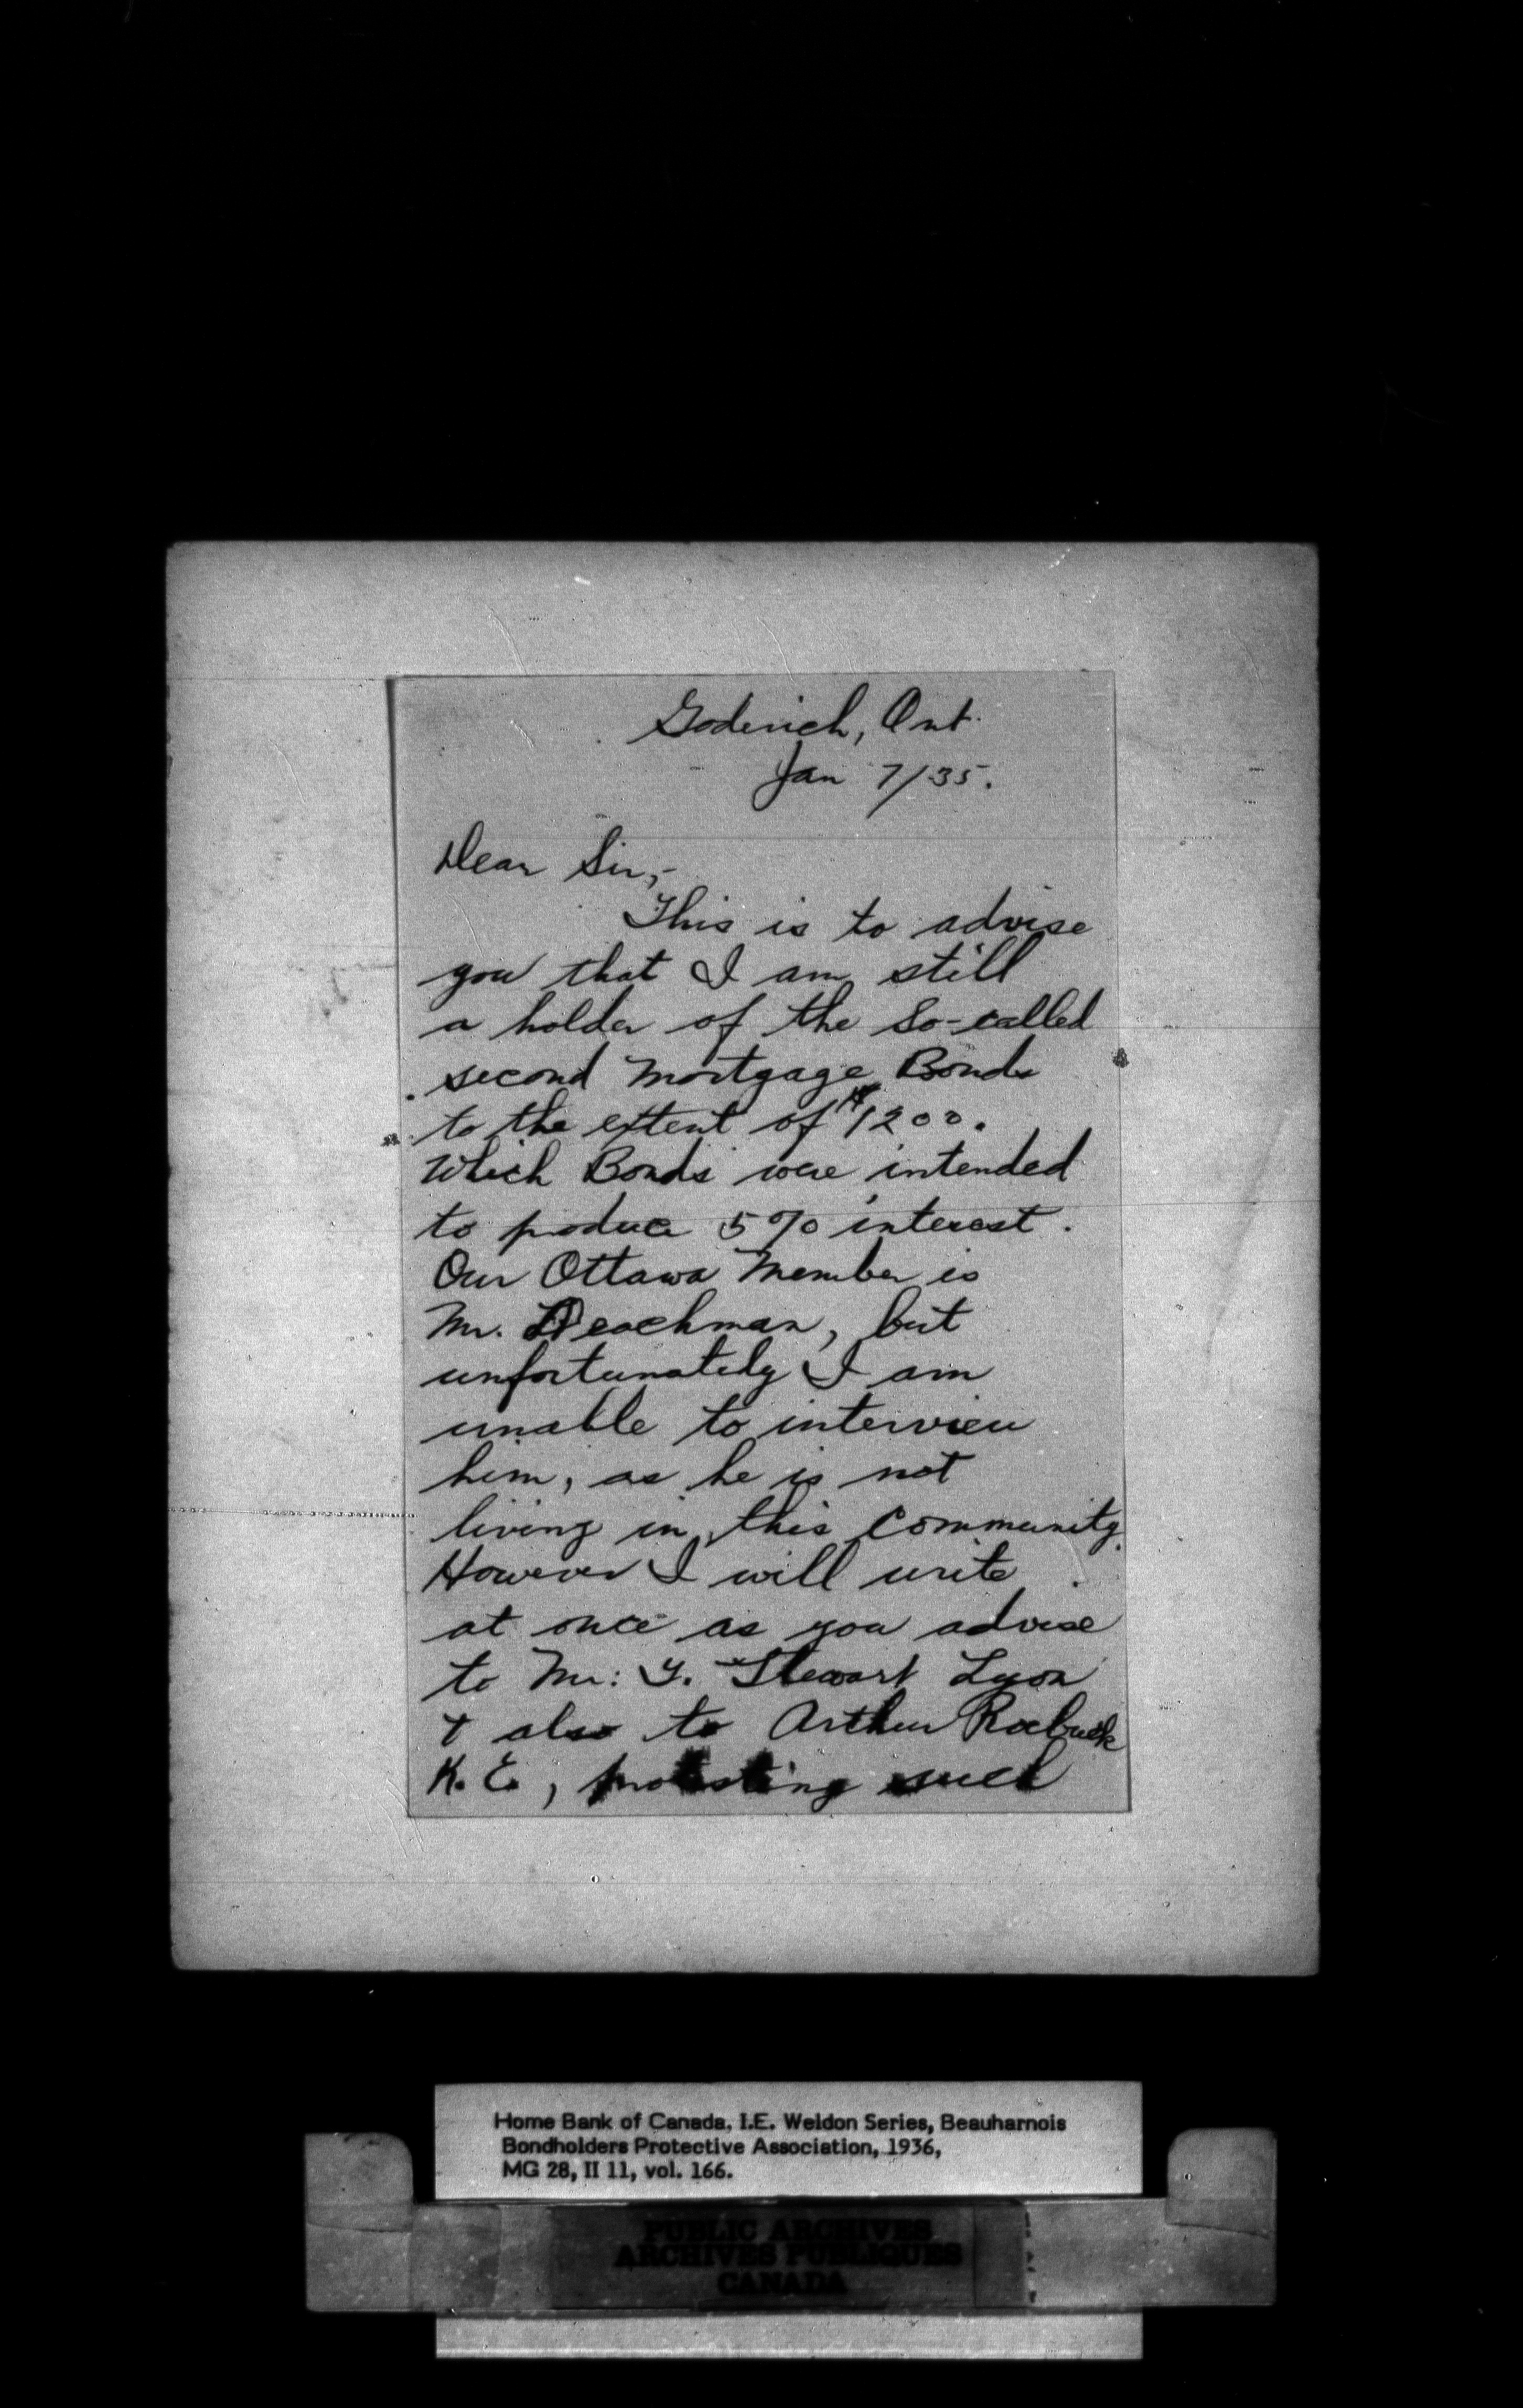 Goderich, Ont.
Jan 7/35.
Dear Sir,-
This is to advise
you that I am still
a holder of the so-called
second Mortgage Bonds
to the extent of $1200.
Which Bonds were intended
to produce 5% interest.
Our Ottawa Member is
Mr. Deachman, but
unfortunately I am
unable to interview
him, as he is not
living in this community.
However I will write
at once as you advise
to Mr. T. Stewart Lyon
& also to Arthur Roebuck
K. C., protesting such
Home Bank of Canada, I.E. Weldon Series, Beauharnois
Bondholders Protective Association, 1936,
MG 28, II 11, vol. 166.
PUBLIC ARCHIVES
ARCHIVES PUBLIQUES
CANADA